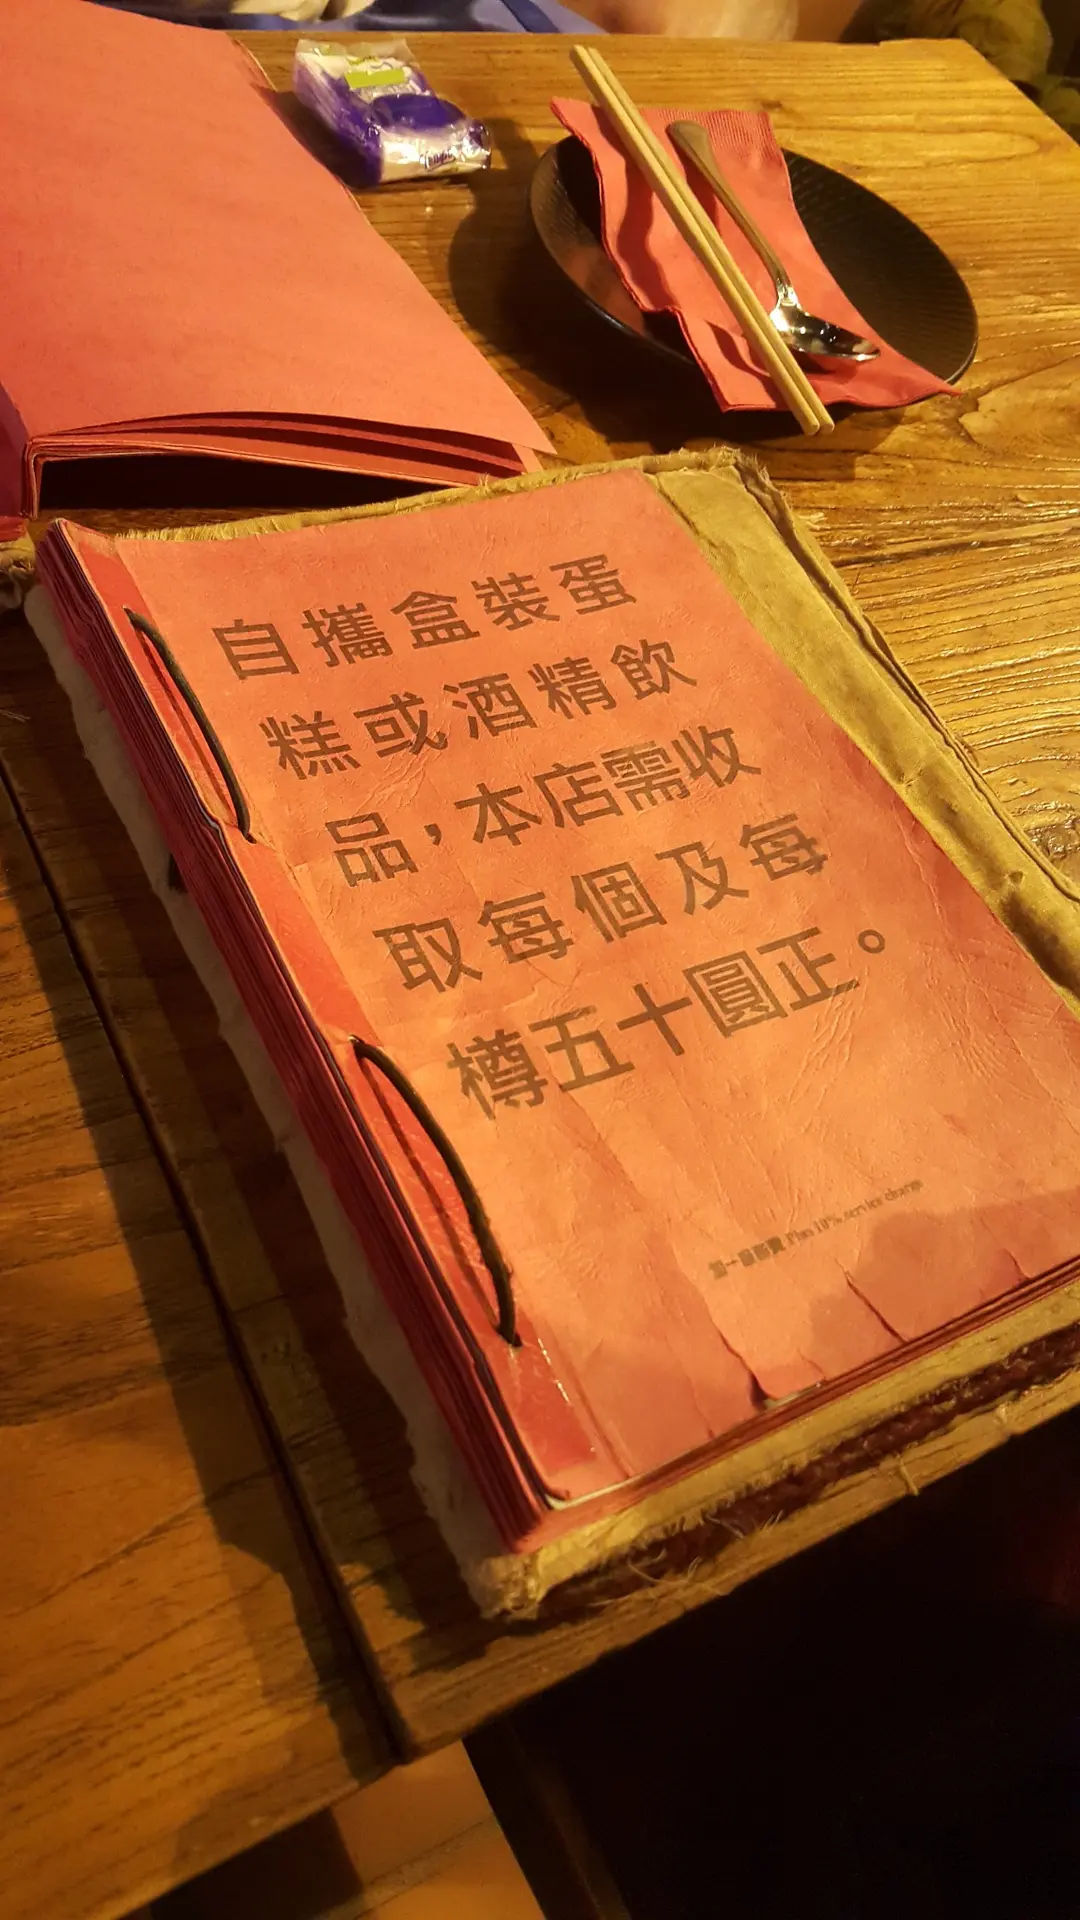 自攜盒裝蛋
糕或酒精飲
品，本店需收
取每個及每
樽五十圓正。
加一服務費 Plus 10% service charge
Tempo